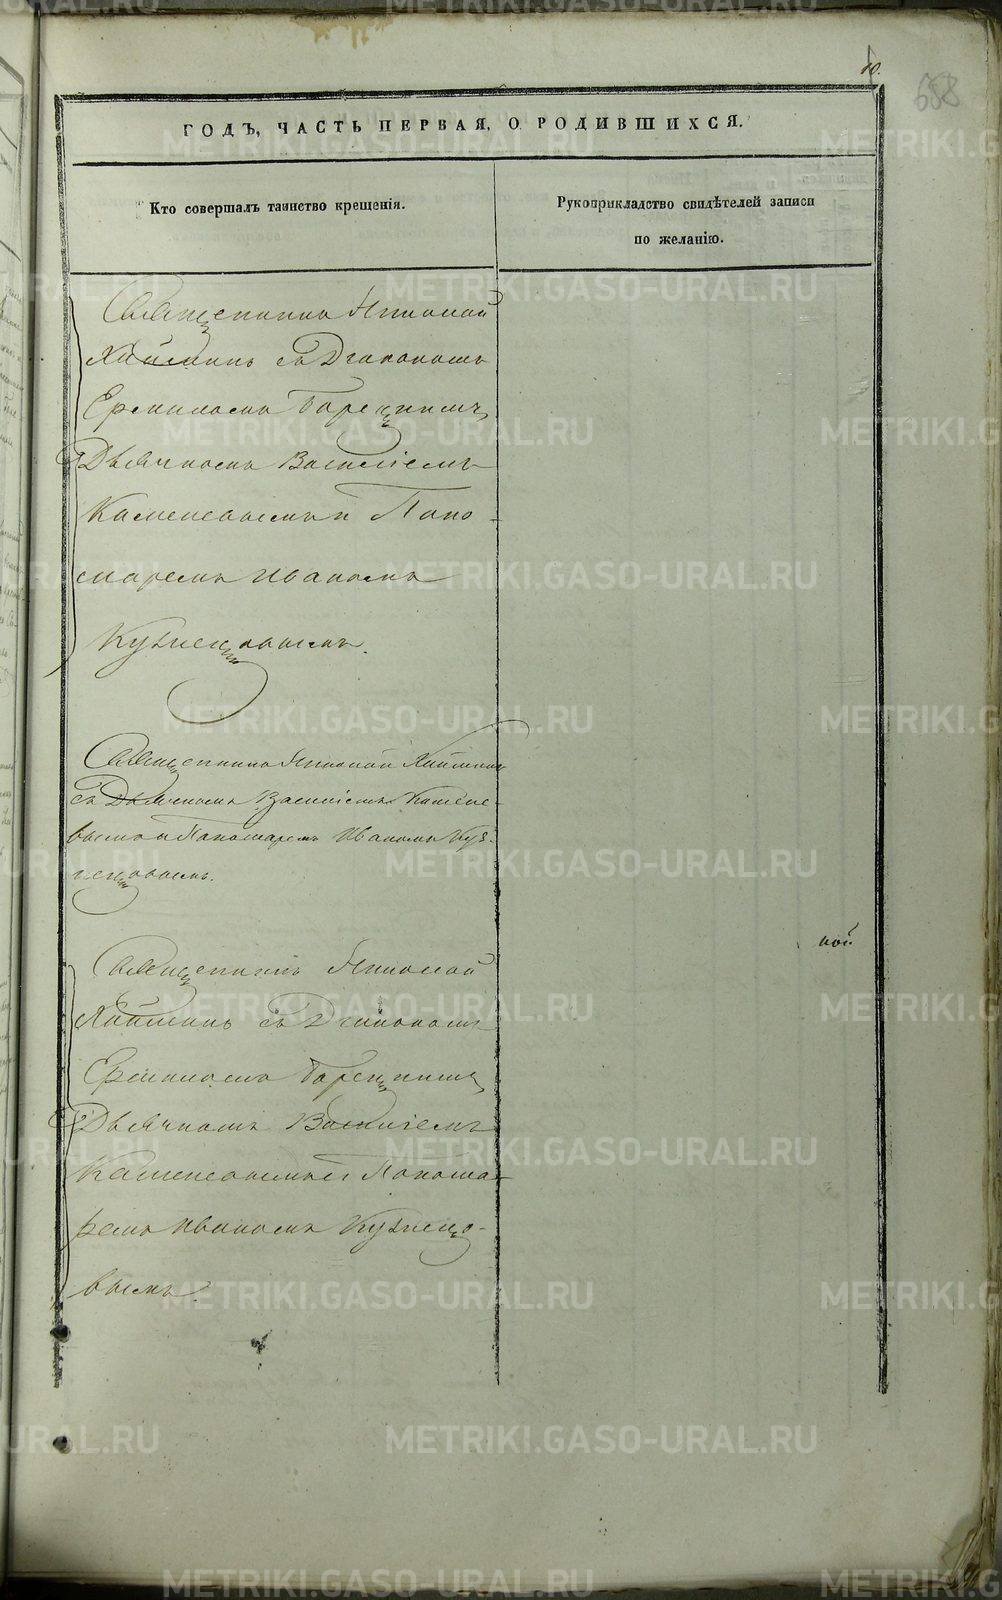 10.
658
ГОДЪ, ЧАСТЬ ПЕРВАЯ, О РОДИВШИХСЯ.
Кто совершалъ таинство крещенія.
Рукоприкладство свидѣтелей записи
по желанію.
Священникъ Николай
съ Діакономъ
Ермиломъ
Дьячкомъ Василіемъ
Каменевымъ и Поно-
маремъ Иваномъ
Кузнецовымъ.
Священникъ Николай
съ Дьячкомъ Василіемъ Камене-
вымъ и Пономаремъ Иваномъ Куз-
нецовымъ.
Священникъ Николай
съ Діакономъ
Ермиломъ
Дьячкомъ Василіемъ
Каменевымъ и Понома-
ремъ Иваномъ Кузнецо-
вымъ.
METRIKI.GASO-URAL.RU